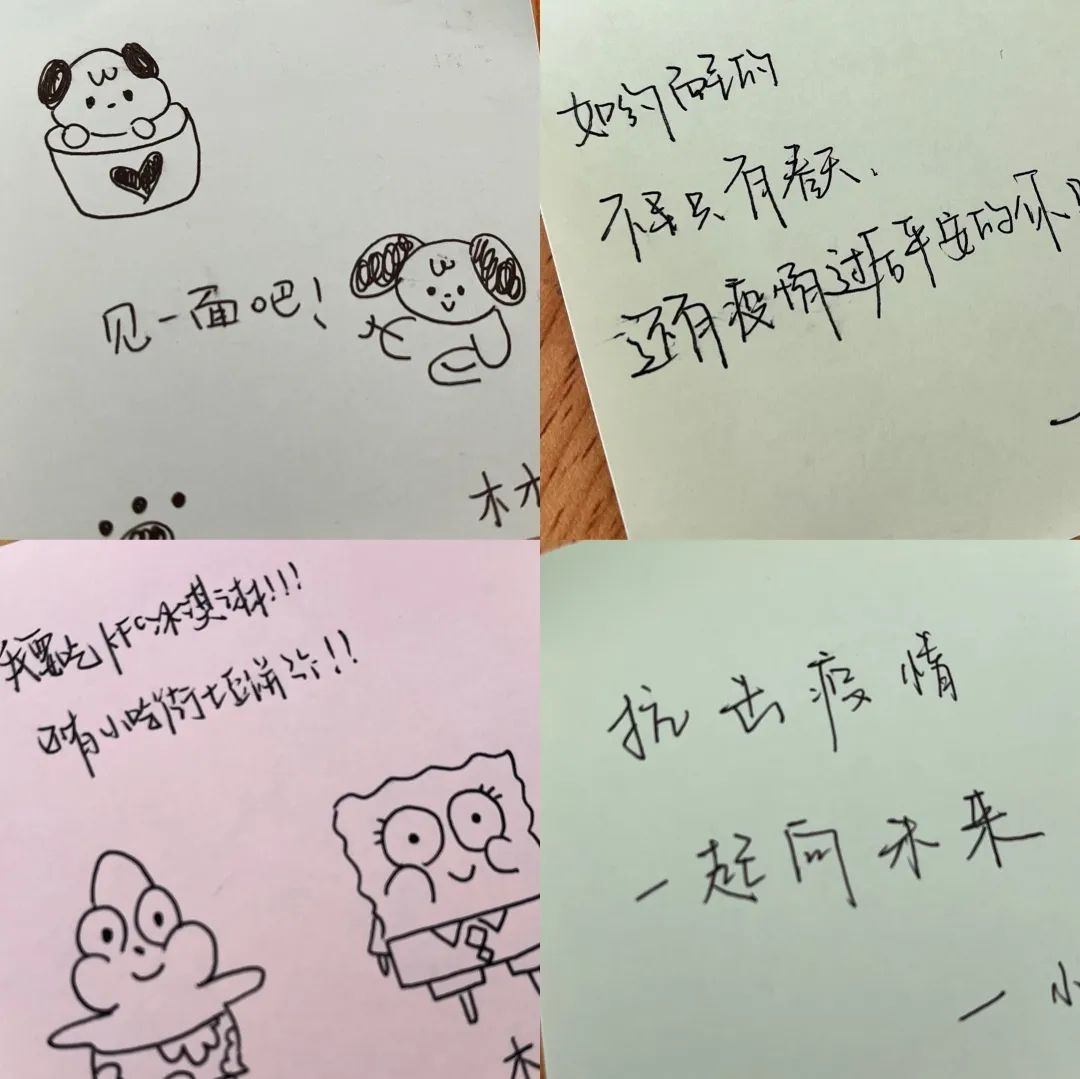 见一面吧！
木木
如约而至的
不是只有春天、
还有疫情过后平安的你
我要吃KFC冰淇淋!!!
还有小哈街土豆饼
抗击疫情
一起向未来
一小
木